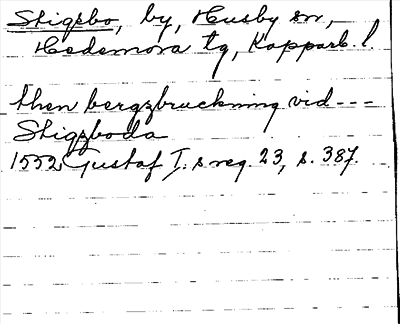 Stigsbo, by, Husby sn,
Hedemora tg, Kopparb. l.
then bergzbruckning vid ---
Stigzboda
1552 Gustaf I. s reg. 23, s. 387.